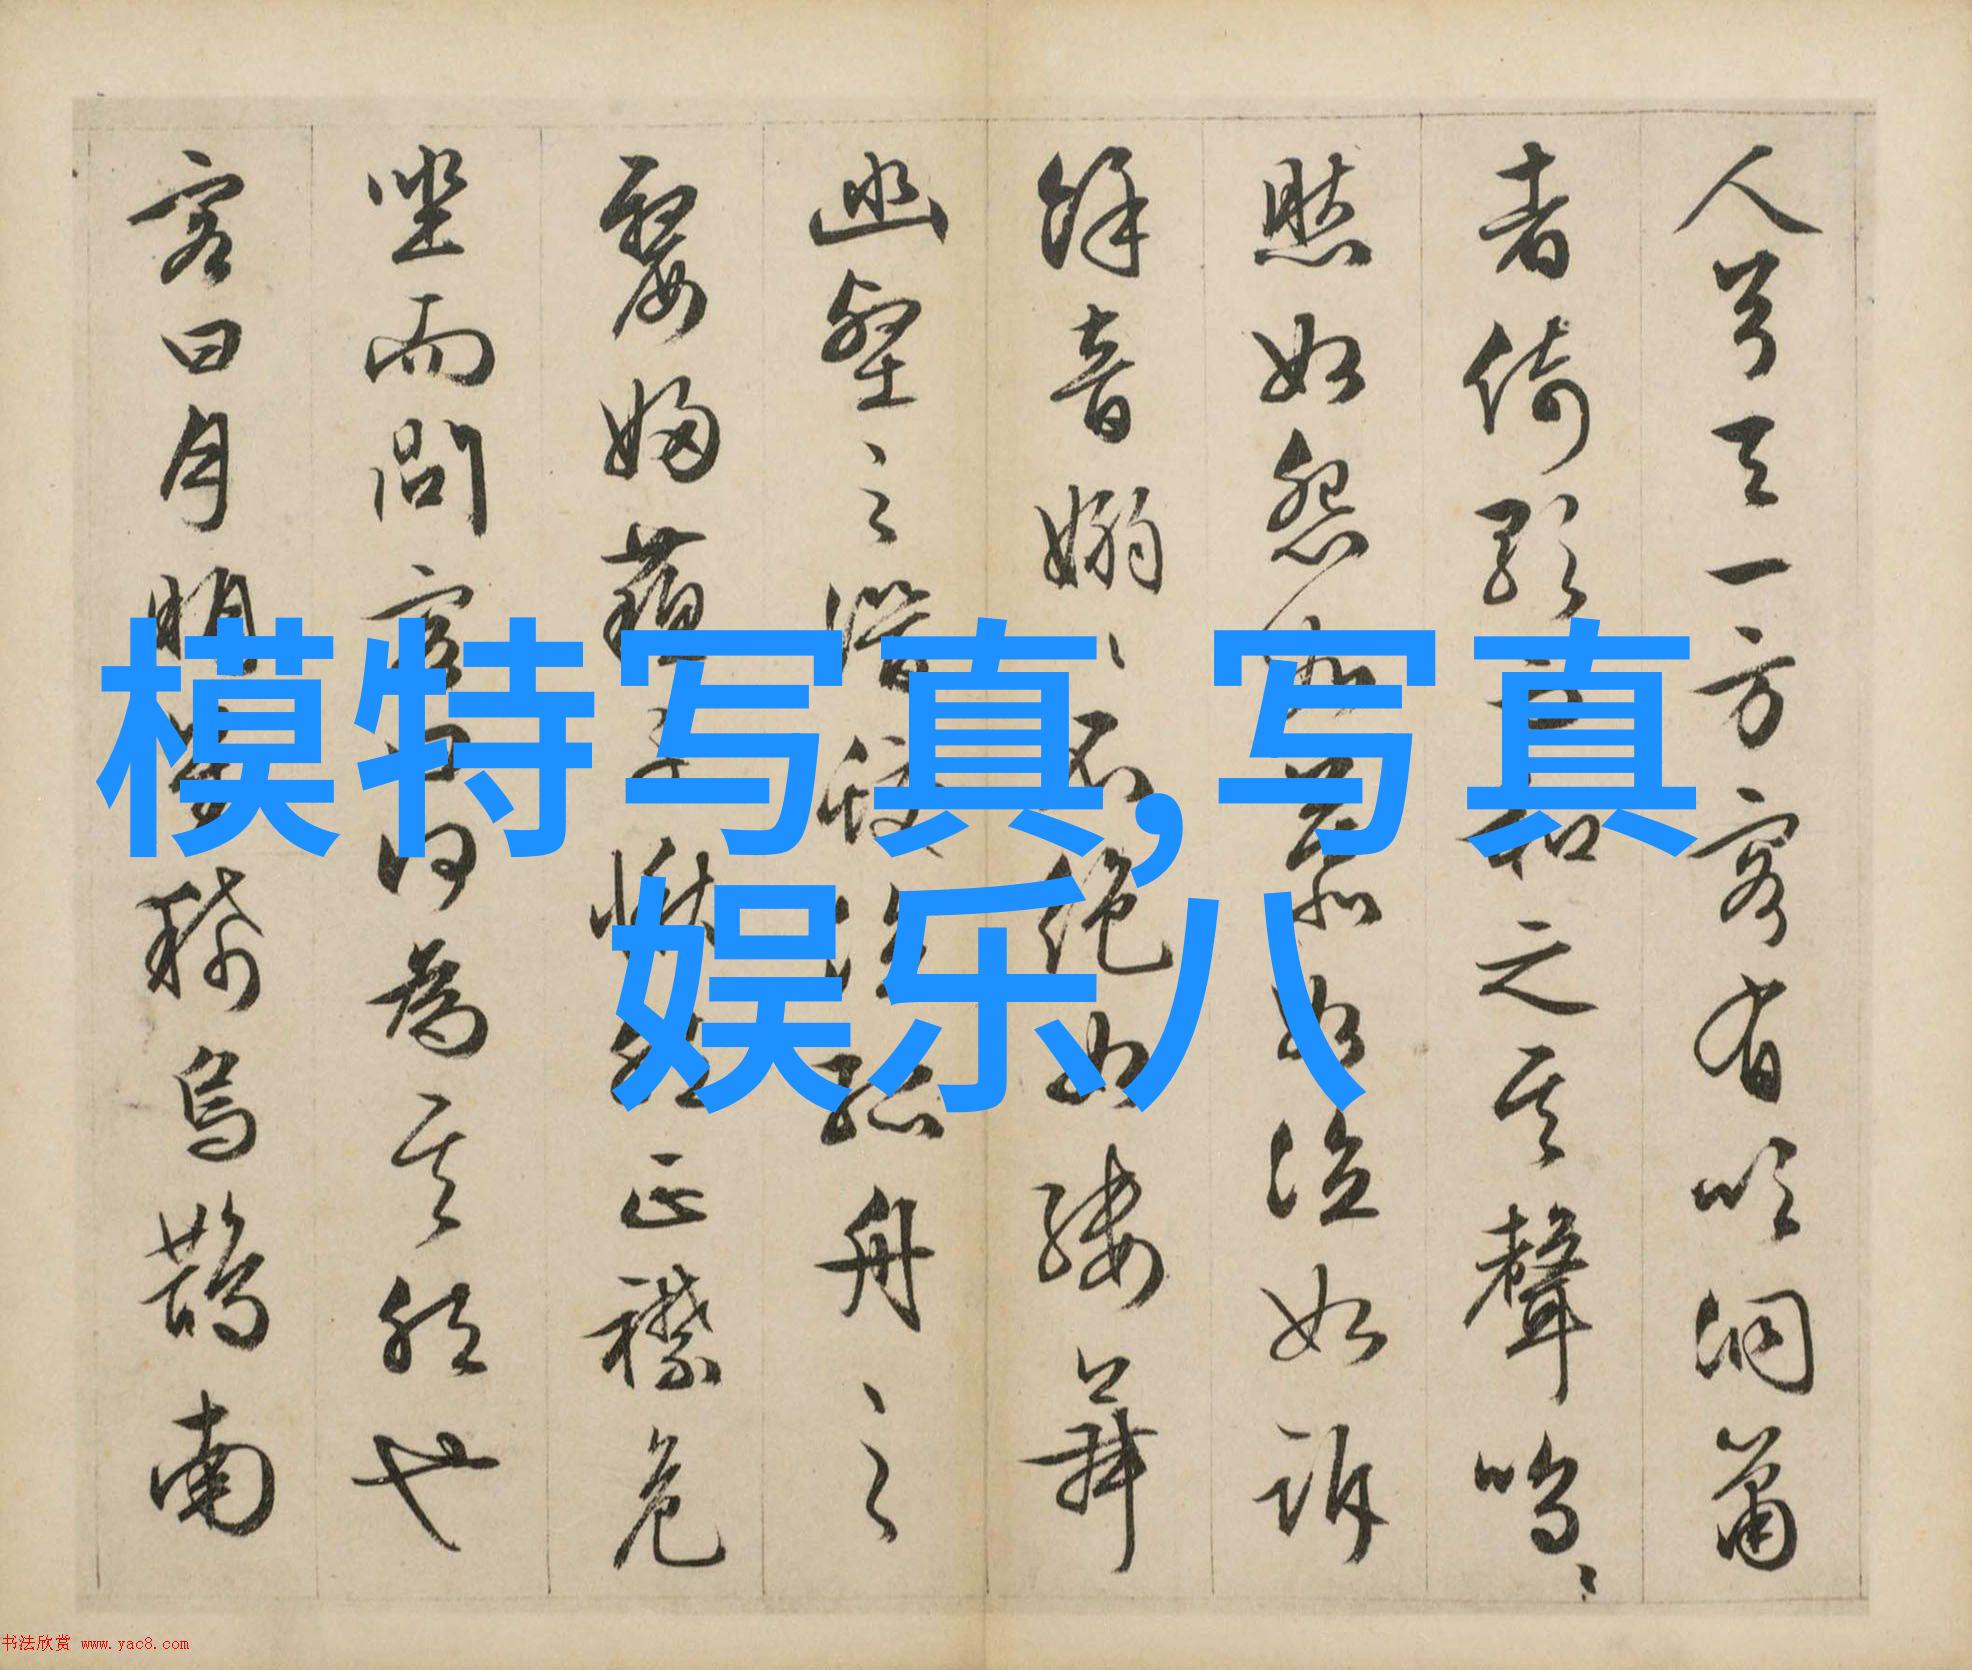 人兮天一方客有吹洞簫
者倚歌而和之其聲嗚〻
然如怨如慕如泣如訴
餘音嫋〻不絕如縷舞
幽壑之潛蛟泣孤舟之
嫠婦蘇子愀然正襟危
坐而問客曰何為其然也
客曰月明星稀烏鵲南
模特写真,写真
娱乐八
书法欣赏 www.yac8.com